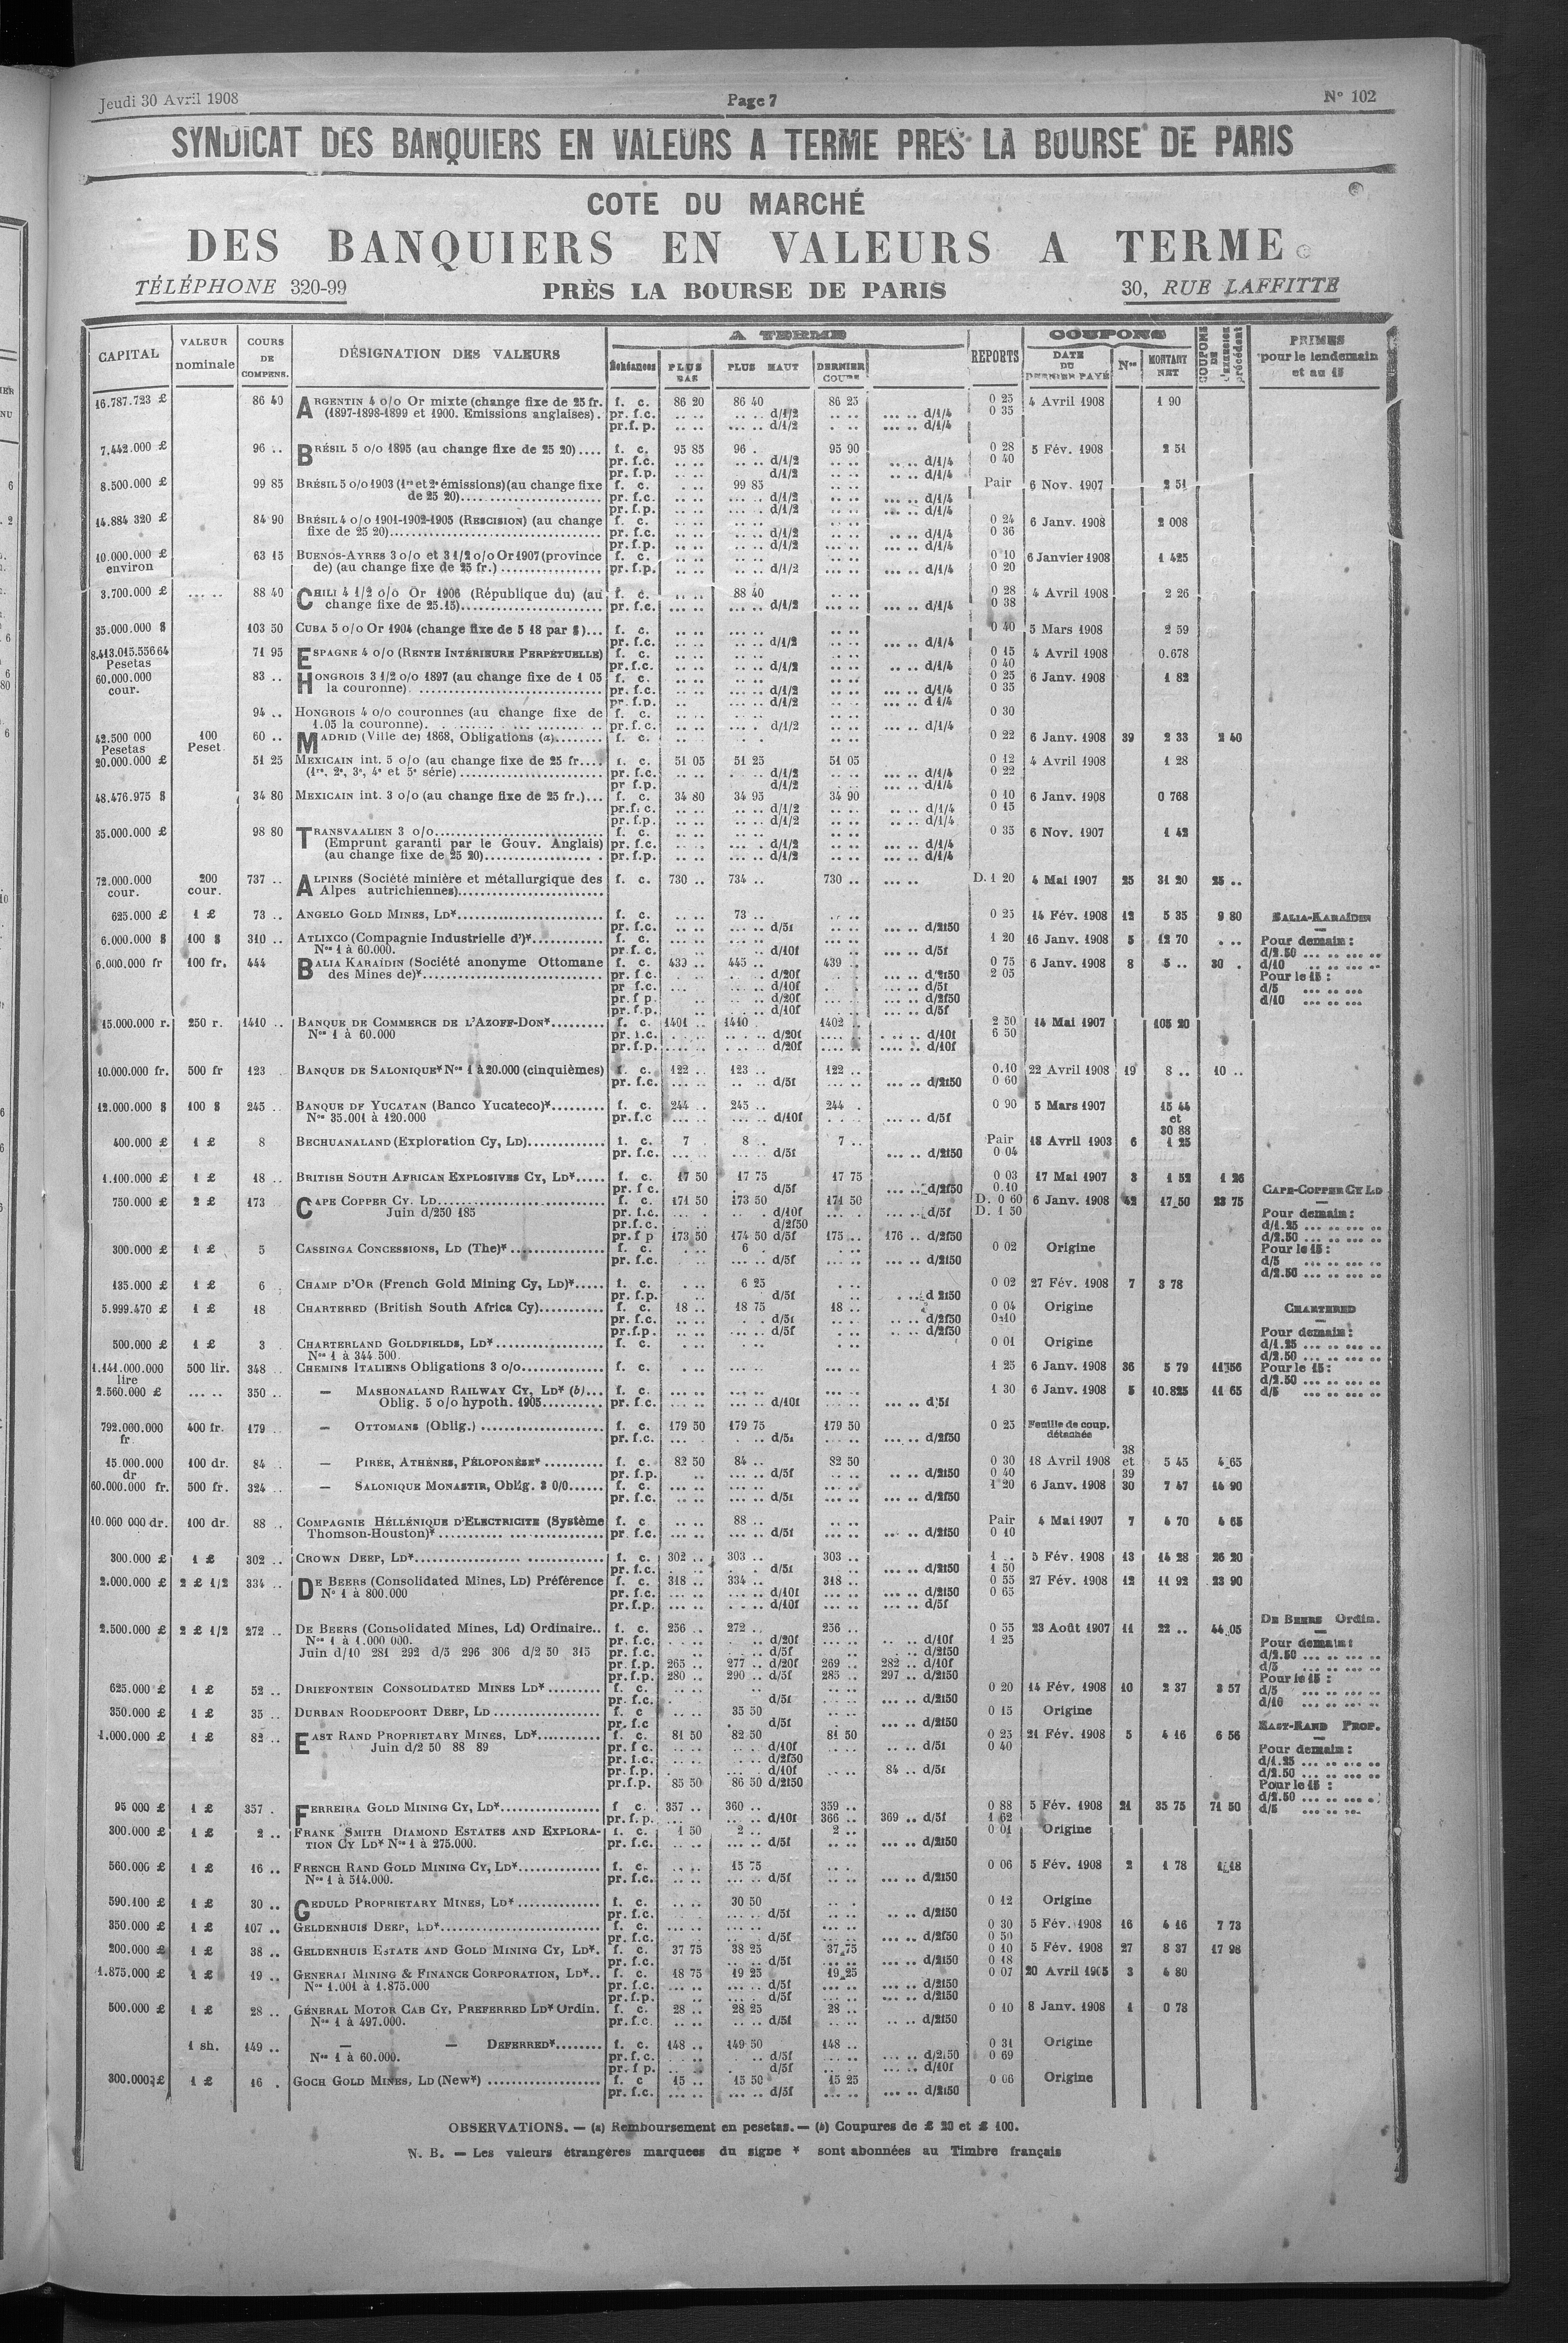 Jeudi 30 Avril 1908 Page 7 N° 102
SYNDICAT DES BANQUIERS EN VALEURS A TERME PRES LA BOURSE DE PARIS
COTE DU MARCHÉ
DES BANQUIERS EN VALEURS A TERME
TÉLÉPHONE 320-99 PRÈS LA BOURSE DE PARIS 30, RUE LAFFITTE
CAPITAL VALEUR nominale COURS DE COMPENS. DÉSIGNATION DES VALEURS A TERME Échéances PLUS BAS PLUS HAUT DERNIER COURS REPORTS COUPONS DATE DU DERNIER PAYÉ Nos MONTANT NET COUPONS DE l'exercice précédent PRIMES pour le lendemain et au 15
16.787.723 £ 86 40 ARGENTIN 4 o/o Or mixte (change fixe de 25 fr. f. c. 86 20 86 40 86 25 0 25 4 Avril 1908 1 90
(1897-1898-1899 et 1900. Emissions anglaises). pr. f.c. d/1/2 d/1/4 0 35
pr.f.p. d/1/2 d/1/4
7.442.000 £ 96 .. BRÉSIL 5 o/o 1895 (au change fixe de 25 20).... f. c. 95 85 96 . 95 90 0 28 5 Fév. 1908 2 51
pr. f.c. d/1/2 d/1/4 0 40
pr. f.p. d/1/2 d/1/4
8.500.000 £ 99 85 BRÉSIL 5 o/o 1903 (1re et 2e émissions) (au change fixe f. c. 99 85 Pair 6 Nov. 1907 2 51
de 25 20) pr. f.c. d/1/2 d/1/4
pr. f.p. d/1/2 d/1/4
14.884 320 £ 84 90 BRÉSIL 4 o/o 1901-1902-1905 (RESCISION) (au change f. c. 0 24 6 Janv. 1908 2 008
fixe de 25 20) pr. f.c. d/1/2 d/1/4 0 36
pr.f.p. d/1/2 d/1/4
10.000.000 £ 63 15 BUENOS-AYRES 3 o/o et 3 1/2 o/o Or 1907 (province f. c. 0 10 6 Janvier 1908 1 425
environ de) (au change fixe de 25 fr.) pr. f.p. d/1/2 d/1/4 0 20
3.700.000 £ 88 40 CHILI 4 1/2 o/o Or 1906 (République du) (au f. c. 88 40 0 28 4 Avril 1908 2 26
change fixe de 25.15) pr. f.c. d/1/2 d/1/4 0 38
35.000.000 $ 103 50 CUBA 5 o/o Or 1904 (change fixe de 5 18 par $)... f. c. 0 40 5 Mars 1908 2 59
pr. f.c. d/1/2 d/1/4
8.413.015.556 64 71 95 ESPAGNE 4 o/o (RENTE INTÉRIEURE PERPÉTUELLE) f. c. 0 15 4 Avril 1908 0.678
Pesetas pr. f.c. d/1/2 d/1/4 0 40
60.000.000 83 .. HONGROIS 3 1/2 o/o 1897 (au change fixe de 1 05 f. c. 0 25 6 Janv. 1908 1 82
cour. la couronne) pr. f.c. d/1/2 d/1/4 0 35
pr. f.p. d/1/2 d 1/4
94 .. HONGROIS 4 o/o couronnes (au change fixe de f. c. 0 30
1.05 la couronne). pr. f. c. d/1/2 d/1/4
42.500 000 100 60 .. MADRID (Ville de) 1868, Obligations (a) f. c. 0 22 6 Janv. 1908 39 2 33 2 40
Pesetas Peset
20.000.000 £ 51 25 MEXICAIN int. 5 o/o (au change fixe de 25 fr.... f. c. 51 05 51 25 51 05 0 12 4 Avril 1908 1 28
(1re, 2e, 3e, 4e et 5e série) pr. f.c. d/1/2 d/1/4 0 22
pr f.p. d/1/2 d/1/4
48.476.975 $ 34 80 MEXICAIN int. 3 o/o (au change fixe de 25 fr.)... f. c. 34 80 34 95 34 90 0 10 6 Janv. 1908 0 768
pr.f. c. d/1/2 d/1/4 0 15
pr.f.p. d/1/2 d/1/4
35.000.000 £ 98 80 TRANSVAALIEN 3 o/o f. c. 0 35 6 Nov. 1907 1 42
(Emprunt garanti par le Gouv. Anglais) pr. f.c. d/1/2 d/1/4
(au change fixe de 25 20) pr. f.p. d/1/2 d/1/4
72.000.000 200 737 .. ALPINES (Société minière et métallurgique des f. c. 730 .. 734 .. 730 .. D. 1 20 4 Mai 1907 25 31 20 25 ..
cour. cour. Alpes autrichiennes)
625.000 £ 1 £ 73 .. ANGELO GOLD MINES, LD* f. c. 73 .. 0 25 14 Fév. 1908 12 5 35 9 80 BALIA-KARAÏDIN
pr. f.c. d/5f d/2f50
6.000.000 $ 100 $ 310 .. ATLIXCO (Compagnie Industrielle d')* f. c. 1 20 16 Janv. 1908 5 12 70 Pour demain :
Nos 1 à 60.000. pr. f. c. d/10f d/5f d/2.50
6.000.000 fr 100 fr. 444 BALIA KARAÏDIN (Société anonyme Ottomane f. c. 439 .. 445 .. 439 .. 0 75 6 Janv. 1908 8 5 .. 30 . d/10
des Mines de)* pr. f.c. d/20f d/2f50 2 05 Pour le 15 :
pr f.c. d/10f d/5f d/5
pr. f p. d/20f d/2f50 d/10
pr. f.p. d/10f d/5f
15.000.000 r. 250 r. 1410 .. BANQUE DE COMMERCE DE L'AZOFF-DON* f. c. 1401 .. 1410 .. 1402 .. 2 50 14 Mai 1907 105 20
Nos 1 à 60.000 pr. f.c. d/20f d/10f 6 50
pr. f.p. d/20f d/10f
10.000.000 fr. 500 fr 123 BANQUE DE SALONIQUE* Nos 1 à 20.000 (cinquièmes) f. c. 122 .. 123 .. 122 .. 0.10 22 Avril 1908 19 8 .. 10 ..
pr. f.c. d/5f d/2f50 0 60
12.000.000 $ 100 $ 245 .. BANQUE DE YUCATAN (Banco Yucateco)* f. c. 244 .. 245 .. 244 . 0 90 5 Mars 1907 15 44
Nos 35.001 à 120.000 pr. f.c d/10f d/5f et
30 88
400.000 £ 1 £ 8 BECHUANALAND (Exploration Cy, LD) f. c. 7 8 . 7 .. Pair 18 Avril 1903 6 1 25
pr. f.c. d/5f d/2f50 0 04
1.100.000 £ 1 £ 18 .. BRITISH SOUTH AFRICAN EXPLOSIVES CY, LD* f. c. 17 50 17 75 17 75 0 03 17 Mai 1907 3 1 52 1 26
pr. f c. d/5f d/2f50 0.10 CAPE-COPPER CY LD
750.000 £ 2 £ 173 CAPE COPPER CY. LD f. c. 171 50 173 50 171 50 D. 0 60 6 Janv. 1908 42 17 50 23 75
Juin d/250 185 pr. f.c. d/10f d/5f D. 1 50 Pour demain :
pr.f.c. d/2f50 d/1.25
pr.f p 173 50 174 50 d/5f 175 .. 176 .. d/2f50 d/2.50
300.000 £ 1 £ 5 CASSINGA CONCESSIONS, LD (The)* f. c. 6 . 0 02 Origine Pour le 15 :
pr. f.c. d/5f d/2f50 d/5
d/2.50
135.000 £ 1 £ 6 . CHAMP D'OR (French Gold Mining Cy, LD)* f. c. 6 25 0 02 27 Fév. 1908 7 3 78
pr. f.p. d/5f d 2f50
5.999.470 £ 1 £ 18 CHARTERED (British South Africa Cy) f. c. 18 .. 18 75 18 .. 0 04 Origine CHARTERED
pr. f.c. d/5f d/2f50 0 10
pr.f.p. d/5f d/2f50 Pour demain :
500.000 £ 1 £ 3 . CHARTERLAND GOLDFIELDS, LD* f. c. 0 01 Origine d/1.25
Nos 1 à 344.500. d/2.50
1.141.000.000 500 lir. 348 .. CHEMINS ITALIENS Obligations 3 o/o f. c. 1 25 6 Janv. 1908 36 5 79 11 56 Pour le 15 :
lire d/2.50
2.560.000 £ 350 .. — MASHONALAND RAILWAY CY, LD* (b)... f. c. 1 30 6 Janv. 1908 5 10.825 11 65 d/5
Oblig. 5 o/o hypoth. 1905 pr. f.c. d/10f d/5f
792.000.000 400 fr. 179 .. — OTTOMANS (Oblig.) f. c. 179 50 179 75 179 50 0 25 Feuille de coup.
fr pr. f.c. d/5f d/2f50 détachée
38
15.000.000 100 dr. 84 .. — PIRÉE, ATHÈNES, PÉLOPONÈSE* f. c. 82 50 84 .. 82 50 0 30 18 Avril 1908 et 5 45 4 65
dr pr. f.p. d/5f d/2f50 0 40 39
60.000.000 fr. 500 fr. 324 .. — SALONIQUE MONASTIR, Oblig. 3 0/0 f. c. 1 20 6 Janv. 1908 30 7 47 14 90
pr. f.c. d/5f d/2f50
10.000 000 dr. 100 dr. 88 .. COMPAGNIE HÉLLÉNIQUE D'ELECTRICITE (Système f. c 88 .. Pair 4 Mai 1907 7 4 70 4 65
Thomson-Houston)* pr. f.c. d/5f d/2f50 0 10
300.000 £ 1 £ 302 .. CROWN DEEP, LD* f. c. 302 .. 303 .. 303 .. 1 .. 5 Fév. 1908 13 14 28 26 20
pr. f.c. d/5f d/2f50 1 50
2.000.000 £ 2 £ 1/2 334 .. DE BEERS (Consolidated Mines, LD) Préférence f. c. 318 .. 334 .. 318 .. 0 55 27 Fév. 1908 12 11 92 23 90
N° 1 à 800.000 pr. f.c. d/10f d/2f50 0 65
pr. f.p. d/10f d/5f
2.500.000 £ 2 £ 1/2 272 .. DE BEERS (Consolidated Mines, Ld) Ordinaire.. f. c. 256 .. 272 .. 256 .. 0 55 23 Août 1907 11 22 .. 44 05 DE BEERS Ordin.
Nos 1 à 1.000 000. pr. f.c. d/20f d/10f 1 25
Juin d/10 281 292 d/5 296 306 d/2 50 315 pr. f.c. d/5f d/2f50 Pour demain :
pr. f.p. 265 .. 277 .. d/20f 269 .. 282 .. d/10f d/2.50
pr. f.p. 280 .. 290 .. d/5f 285 .. 297 .. d/2f50 d/5
625.000 £ 1 £ 52 .. DRIEFONTEIN CONSOLIDATED MINES LD* f. c. 0 20 14 Fév. 1908 10 2 37 3 57 Pour le 15 :
pr. f.c. d/5f d/2f50 d/5
350.000 £ 1 £ 35 .. DURBAN ROODEPOORT DEEP, LD f. c 35 50 0 15 Origine d/10
pr. f.c d/5f d/2f50
1.000.000 £ 1 £ 82 .. EAST RAND PROPRIETARY MINES, LD* f. c. 81 50 82 50 81 50 0 25 21 Fév. 1908 5 4 16 6 56 EAST-RAND PROP.
Juin d/2 50 88 89 pr. f c. d/10f d/5f 0 40
pr. f.c. d/2f50 Pour demain :
pr. f.p. d/10f 84 .. d/5f d/1.25
pr.f.p. 85 50 86 50 d/2f50 d/2.50
Pour le 15 :
95 000 £ 1 £ 357 . FERREIRA GOLD MINING CY, LD* f c. 357 .. 360 .. 359 .. 0 88 5 Fév. 1908 21 35 75 71 50 d/2.50
pr. f.p. d/10f 366 .. 369 .. d/5f 1 62 d/5
300.000 £ 1 £ 2 .. FRANK SMITH DIAMOND ESTATES AND EXPLORA- f. c. 1 50 2 .. 2 .. 0 01 Origine
TION CY LD* Nos 1 à 275.000. pr. f.c. d/5f d/2f50
560.000 £ 1 £ 16 .. FRENCH RAND GOLD MINING CY, LD* f. c. 15 75 0 06 5 Fév. 1908 2 1 78 1 18
Nos 1 à 514.000. pr. f.c. d/5f d/2f50
590.100 £ 1 £ 30 .. GEDULD PROPRIETARY MINES, LD* f. c. 30 50 0 12 Origine
pr. f.c. d/5f d/2f50
350.000 £ 1 £ 107 .. GELDENHUIS DEEP, LD* f. c. 0 30 5 Fév. 1908 16 4 16 7 73
pr. f.c. d/5f d/2f50 0 50
200.000 £ 1 £ 38 .. GELDENHUIS ESTATE AND GOLD MINING CY, LD*. f. c. 37 75 38 25 37 75 0 10 5 Fév. 1908 27 8 37 17 98
pr. f.c. d/5f d/2f50 0 18
1.875.000 £ 1 £ 19 .. GENERAL MINING & FINANCE CORPORATION, LD*.. f. c. 18 75 19 25 19 25 0 07 20 Avril 1905 3 4 80
Nos 1.001 à 1.875.000 pr. f.c. d/5f d/2f50
pr. f.p. d/5f d/2f50
500.000 £ 1 £ 28 .. GÉNÉRAL MOTOR CAB CY, PREFERRED LD* Ordin. f. c. 28 .. 28 25 28 .. 0 10 8 Janv. 1908 1 0 78
Nos 1 à 497.000. pr. f.c. d/5f d/2f50
1 sh. 149 .. — — DEFERRED* f. c. 148 .. 149 50 148 .. 0 31 Origine
Nos 1 à 60.000. pr. f. c. d/5f d/2f50 0 69
pr. f p. d/5f d/10f
300.000 £ 1 £ 16 . GOCH GOLD MINES, LD (New*) f. c 15 .. 15 50 15 25 0 06 Origine
pr. f.c. d/5f d/2f50
OBSERVATIONS. — (a) Remboursement en pesetas. — (b) Coupures de £ 20 et £ 100.
N. B. — Les valeurs étrangères marquees du signe * sont abonnées au Timbre français